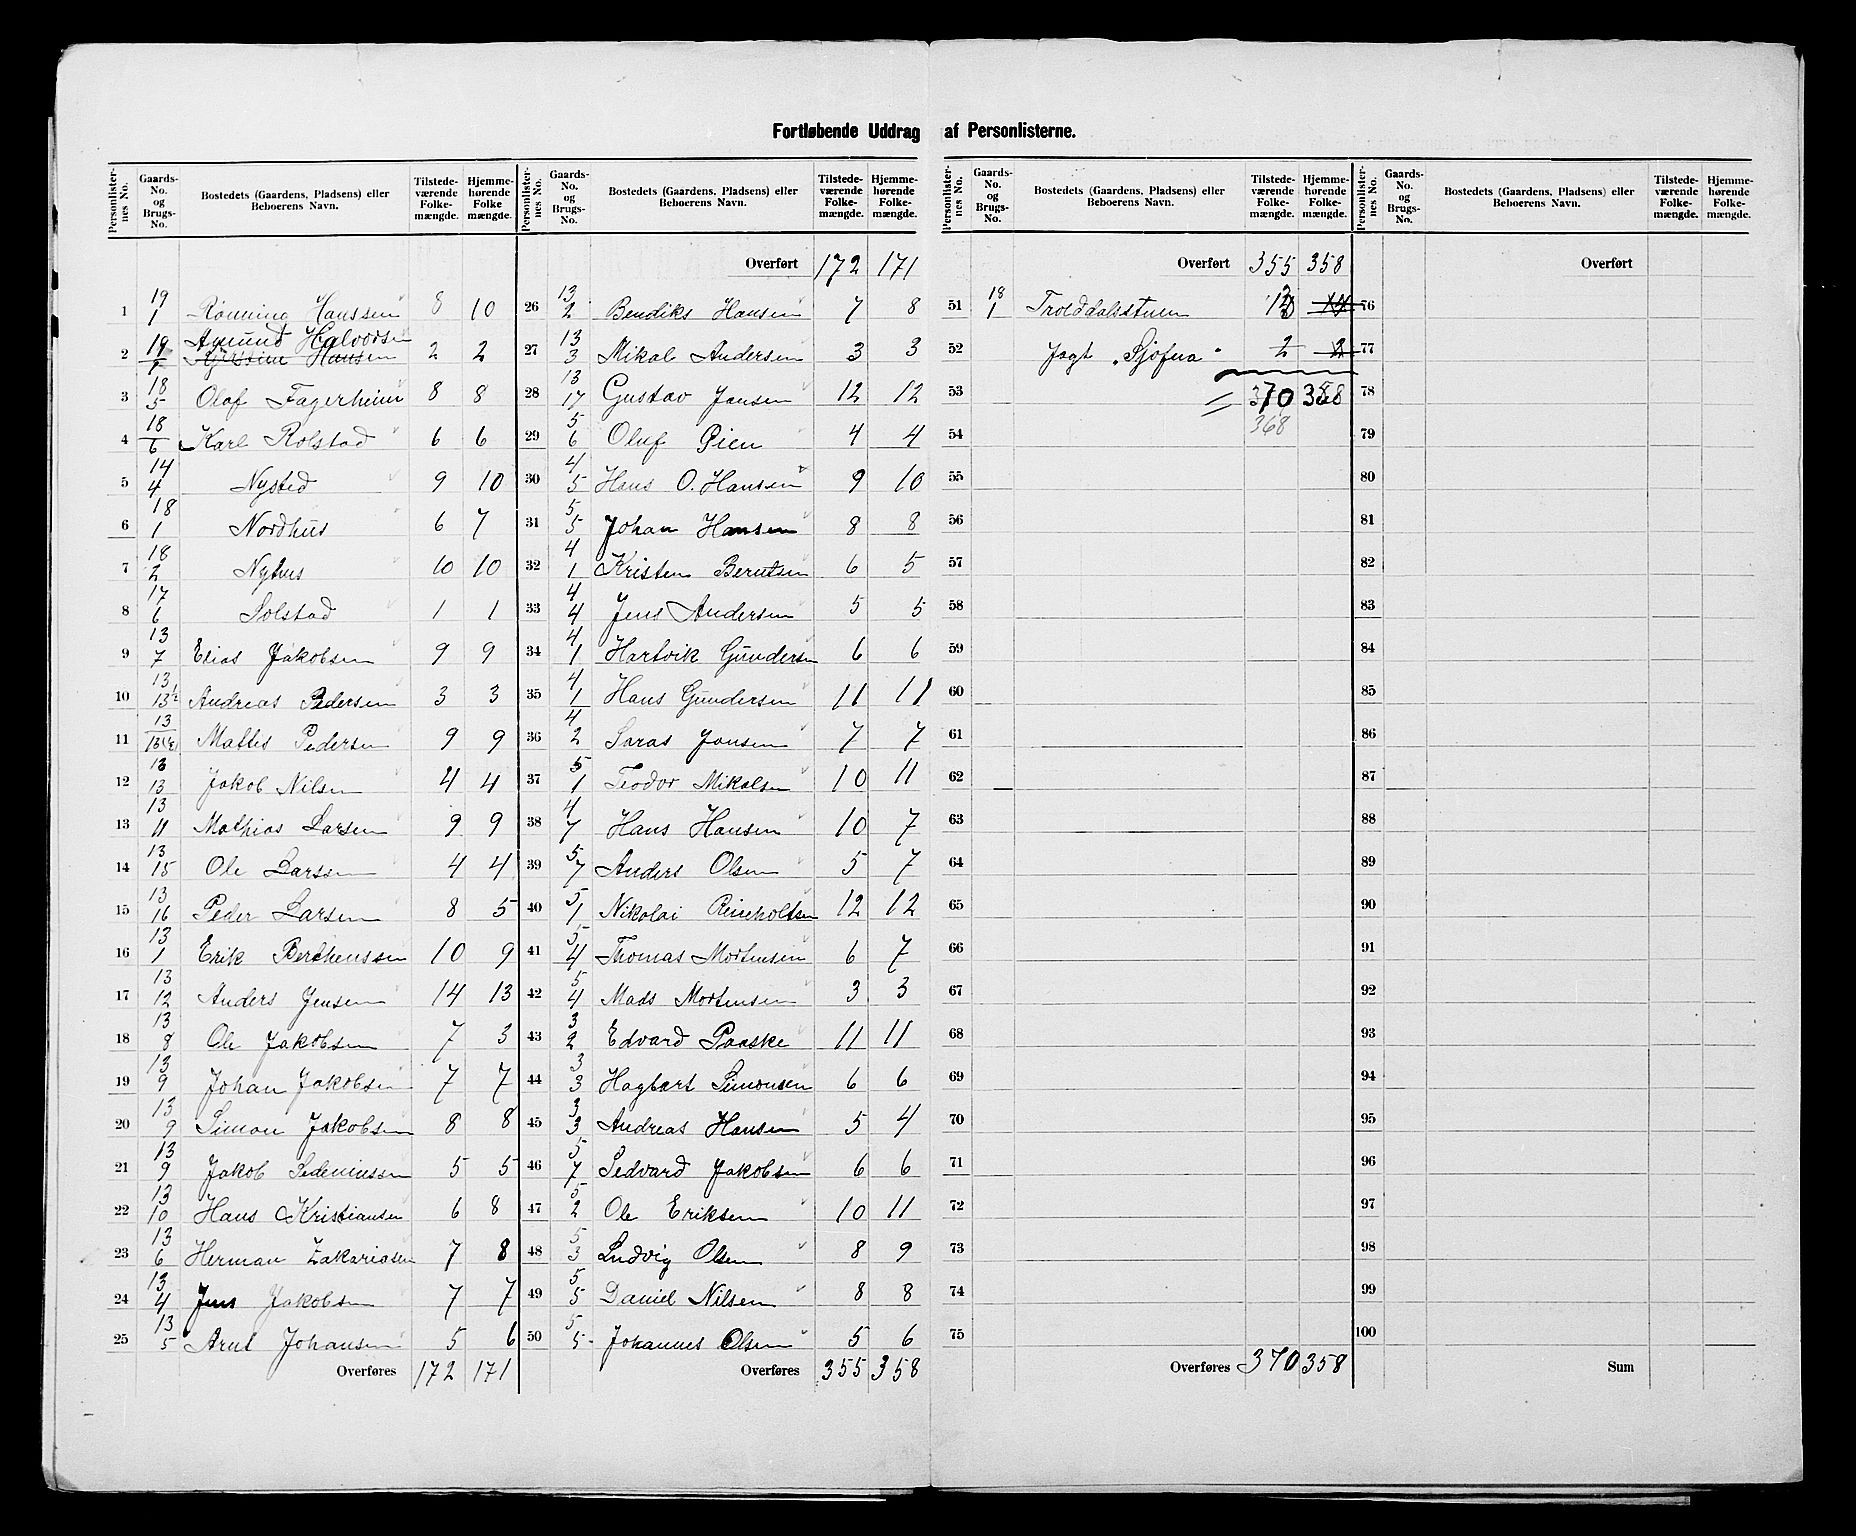 Fortløbende Uddrag af Personlisterne.
Personlister-nes No. | Gaards-No. og Brugs-No. | Bostedets (Gaardens, Pladsens) eller Beboerens Navn. | Tilstede-værende Folke-mængde. | Hjemme-hørende Folke mængde.
1 19/1 Rønning Hanssen 8 10
2 19/1 Amund Halvorsen Hansen 2 2
3 18/5 Olaf Fagerheim 8 8
4 18/6 Karl Rolstad 6 6
5 14/4 Nysted 9 10
6 18/1 Nordhus 6 7
7 18/2 Nyhus 10 10
8 17/6 Solstad 1 1
9 13/7 Elias Jakobsen 9 9
10 13/13 Andreas Pedersen 3 3
11 13/13 Mattis Pedersen 9 9
12 13/13 Jakob Nilsen 4 4
13 13/11 Mathias Larsen 9 9
14 13/15 Ole Larssen 4 4
15 13/16 Peder Larsen 8 5
16 13/1 Erik Berthenssen 10 9
17 13/12 Anders Jensen 14 13
18 13/8 Ole Jakobsen 7 3
19 13/9 Johan Jakobsen 7 7
20 13/9 Simon Jakobsen 8 8
21 13/9 Jakob 5 5
22 13/10 Hans Kristiansen 6 8
23 13/6 Herman Zakariasen 7 8
24 13/4 Jens Jakobsen 7 7
25 13/5 Arnt Johansen 5 6
Overføres 172 171
Personlister-nes No. | Gaards-No. og Brugs-No. | Bostedets (Gaardens, Pladsens) eller Beboerens Navn. | Tilstede-værende Folke-mængde. | Hjemme-hørende Folke-mængde.
Overført 172 171
26 13/2 Bendiks Hansen 7 8
27 13/3 Mikal Andersen 3 3
28 13/17 Gustav Jansen 12 12
29 5/6 Oluf Pien 4 4
30 4/5 Hans O. Hansen 9 10
31 5/5 Johan Hansen 8 8
32 4/1 Kristen Berntsen 6 5
33 4/4 Jens Andersen 5 5
34 4/1 Hartvik Gundersen 6 6
35 4/1 Hans Gundersen 11 11
36 4/2 Saras Jonsen 7 7
37 5/1 Teodor Mikalsen 10 11
38 4/7 Hans Hansen 10 7
39 5/7 Anders Olsen 5 7
40 5/1 Nikolai Reinholtsen 12 12
41 5/4 Thomas Mortensen 6 7
42 5/4 Mads Mortensen 3 3
43 3/2 Edvard Paaske 11 11
44 3/3 Hagbart Simonsen 6 6
45 3/3 Andreas Hansen 5 4
46 5/7 Sedvard Jakobsen 6 6
47 5/2 Ole Eriksen 10 11
48 5/3 Ludvig Olsen 8 9
49 5/5 Daniel Nilsen 8 8
50 5/5 Johannes Olsen 5 6
Overføres 355 358
Personlister-nes No. | Gaards-No. og Brugs-No. | Bostedets (Gaardens, Pladsens) eller Beboerens Navn. | Tilstede-værende Folke-mængde. | Hjemme-hørende Folke-mængde.
Overført 355 358
51 18/1 Trolddalsstuen 13
52 Jagt "Sjofna" 2 2
53 370 358
54 368
55
56
57
58
59
60
61
62
63
64
65
66
67
68
69
70
71
72
73
74
75
Overføres 370 358
Personlister-nes No. | Gaards-No. og Brugs-No. | Bostedets (Gaardens, Pladsens) eller Beboerens Navn. | Tilstede-værende Folke-mængde. | Hjemme-hørende Folke-mængde.
Overført
76
77
78
79
80
81
82
83
84
85
86
87
88
89
90
91
92
93
94
95
96
97
98
99
100
Sum